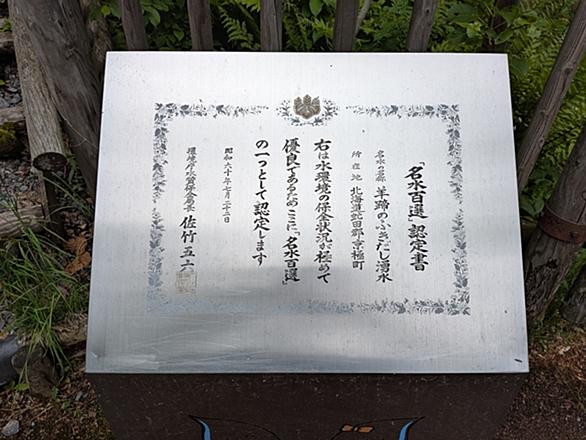 「名水百選」認定書
名水の名称 羊蹄のふきだし湧水
所在地 北海道虻田郡京極町
右は水環境の保全状況が極めて
優良であるためここに「名水百選」
の一つとして認定します
昭和六十年七月二十二日
環境庁水質保全局長 佐竹五六